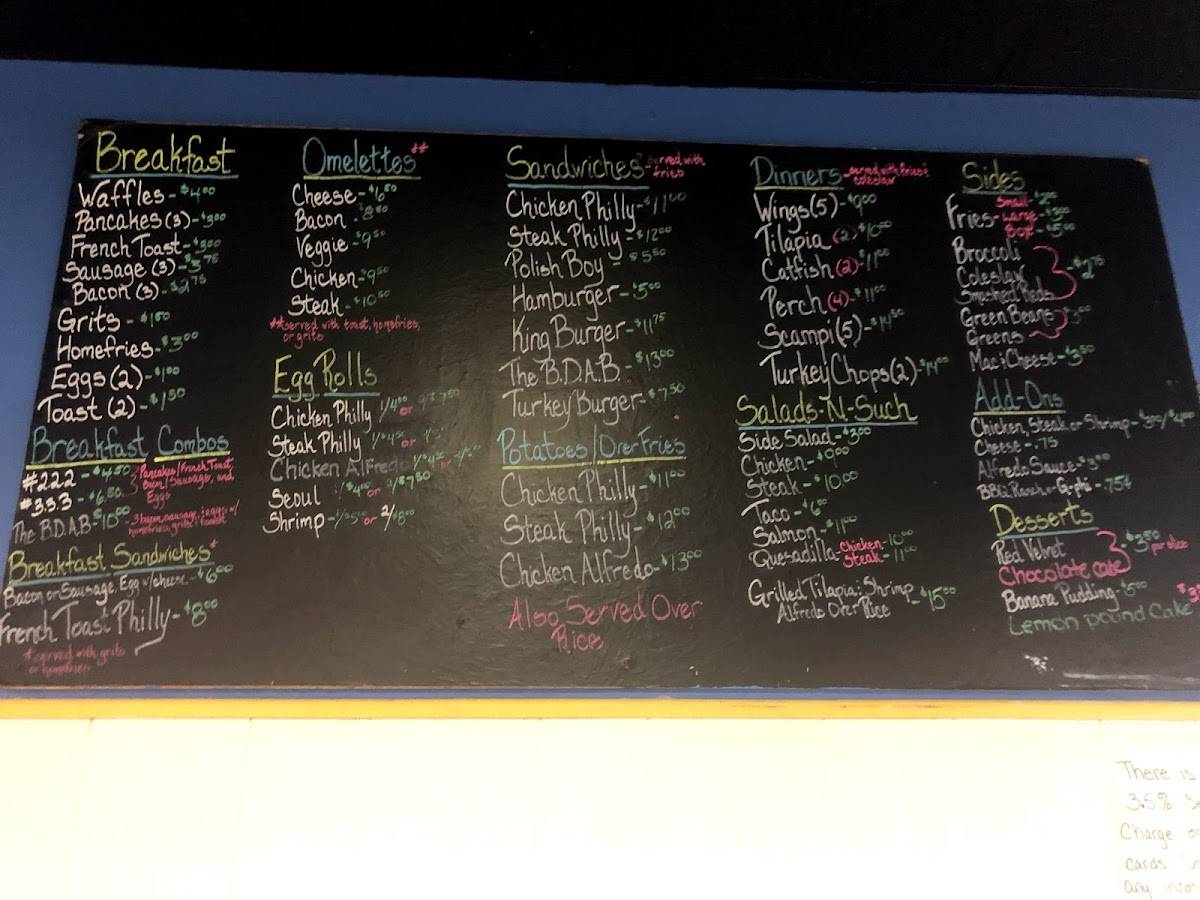 Breakfast
Waffles - $4.00
Pancakes (3) - $3.00
French Toast - $3.00
Sausage (3) - $3.75
Bacon (3) - $2.75
Grits - $1.50
Homefries - $3.00
Eggs (2) - $1.00
Toast (2) - $1.50
Breakfast Combos
#222 - $4.50
#333 - $6.50
Pancakes/French Toast,
Bacon/Sausage, and
Eggs
The B.D.A.B - $10.00 - 3 bacon, sausage, eggs w/
homefries, grits, toast
Breakfast Sandwiches*
Bacon or Sausage, Egg w/cheese - $6.00
French Toast Philly - $8.00
*served with grits
or homefries
Omelettes**
Cheese - $6.50
Bacon - $8.50
Veggie - $9.50
Chicken - 9.50
Steak - $10.50
**served with toast, homefries,
or grits
Egg Rolls
Chicken Philly 1/4.00 or 2/7.50
Steak Philly 1/$4.50 or
Chicken Alfredo
Seoul 1/$4.00 or 2/$7.50
Shrimp - 1/$5.00 or 2/$8.00
Sandwiches - served with
fries
Chicken Philly - $11.00
Steak Philly - $12.00
Polish Boy - $5.50
Hamburger - $5.00
King Burger - $11.75
The B.D.A.B. - $13.00
Turkey Burger - $7.50
Potatoes/Over Fries
Chicken Philly - $11.00
Steak Philly - $12.00
Chicken Alfredo - $13.00
Also Served Over
Rice
Dinners - served with fries &
coleslaw
Wings (5) - $9.00
Tilapia (2) $10.00
Catfish (2) - $11.00
Perch (4) - $11.00
Scampi (5) - $14.50
Turkey Chops (2) - $14.00
Salads-N-Such
Side Salad - $3.00
Chicken - $9.00
Steak - $10.00
Taco - $6.00
Salmon - $11.00
Quesadilla - Chicken - 10.00
Steak - 11.00
Grilled Tilapia & Shrimp - $15.00
Alfredo Over Rice
Sides
Fries - Small $2.00
Large $3.00
Box $5.00
Broccoli
Coleslaw
Smashed Reds
$2.75
Green Beans
Greens
$3.00
Mac & Cheese - $3.50
Add-Ons
Chicken, Steak or Shrimp - $3.00/$4.00
Cheese - .75
Alfredo Sauce - $3.00
BBQ, Ranch or - .75¢
Desserts
Red Velvet
Chocolate cake
$3.50
per slice
Banana Pudding - $5.00
Lemon pound Cake
There is
3.5%
Charge on
cards
any